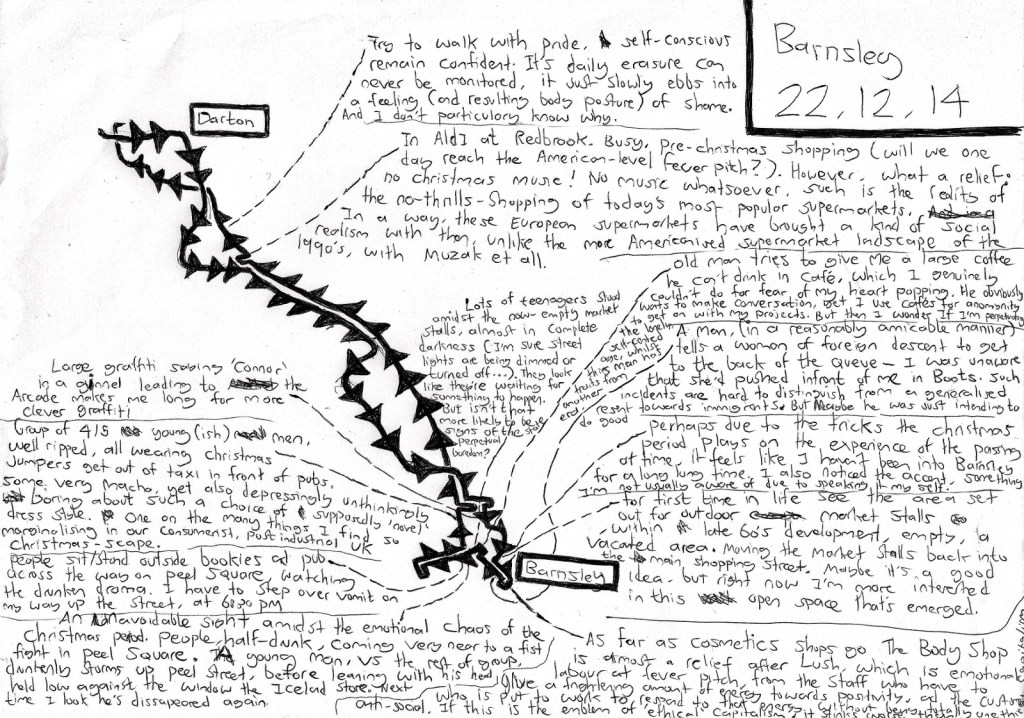 Barnsley
22.12.14
Darton
Try to walk with pride. self-conscious
remain confident. It's daily erasure can
never be monitored, it just slowly ebbs into
a feeling (and resulting body posture) of shame.
And I don't particulary know why.
In Aldi at Redbrook. Busy, pre-christmas shopping (will we one
day reach the American-level fever pitch?). However, what a relief:
no christmas music! No music whatsoever, such is the reality of
the no-thrills-shopping of today's most popular supermarkets.
In a way, these European supermarkets have brought a kind of social
realism with them, unlike the more Americanised supermarket landscape of the
1990's, with Muzak et all.
old man tries to give me a large coffee
he can't drink in café, which I genuinely
couldn't do for fear of my heart popping. He obviously
wants to make conversation, yet I use cafés for anonymity
to get on with my projects. But then I wonder If I'm perpetuating
the lonely
self-centred
age, whilst
this man has
traits from
another
era.
A man, (in a reasonably amicable manner)
tells a woman of foreign descent to get
to the back of the queue – I was unaware
that she'd pushed infront of me in Boots. Such
incidents are hard to distinguish from a generalised
resent towards immigrants. But Maybe he was just intending to
do good
Lots of teenagers stood
amidst the now empty market
stalls, almost in complete
darkness (I'm sure street
lights are being dimmed or
turned off...). They look
like they're waiting for
something to happen.
But isn't that
more likely to be
signs of the
perpetual
boredom?
perhaps due to the tricks the christmas
period plays on the experience of the passing
of time, it feels like I haven't been into Barnsley
for a long long time. I also noticed the accent, something
I'm not usually aware of due to speaking it my self.
for first time in life see the area set
out for outdoor market stalls
within late 60's development, empty, a
vacated area. Moving the market stalls back into
the main shopping street. Maybe it's a good
idea, but right now I'm more interested
in this open space that's emerged.
Large graffiti saying 'Connor'
in a ginnel leading to the
Arcade makes me long for more
clever graffiti
Group of 4/5 young(ish) men,
well ripped, all wearing christmas
Jumpers get out of taxi in front of pubs.
some very macho, yet also depressingly unthinkingly
boring about such a choice of supposedly 'novel'
dress style. One on the many things I find so
marginalising in our consumerist, post industrial UK
christmas-scape.
people sit/stand outside bookies ad pub
across the way on peel Square, watching
the drunken drama. I have to step over vomit on
my way up the street, at 6:30 pm
Barnsley
An Unavoidable sight amidst the emotional chaos of the
Christmas period. People, half-drunk, coming very near to a fist
fight in peel Square. A young man, vs the rest of group,
drunkenly storms up peel street, before leaning with his head
held low against the window the Iceland store. Next
time I look he's dissapeared again.
As far as cosmetics shops go The Body Shop
is almost a relief after Lush, which is emotional
labour at fever pitch, from the staff who have to
give a frightening amount of energy towards positivity, ad the customer
who is put to work to respond to that energy without being
anti-social. If this is the emblem of 'ethical capitalism', it